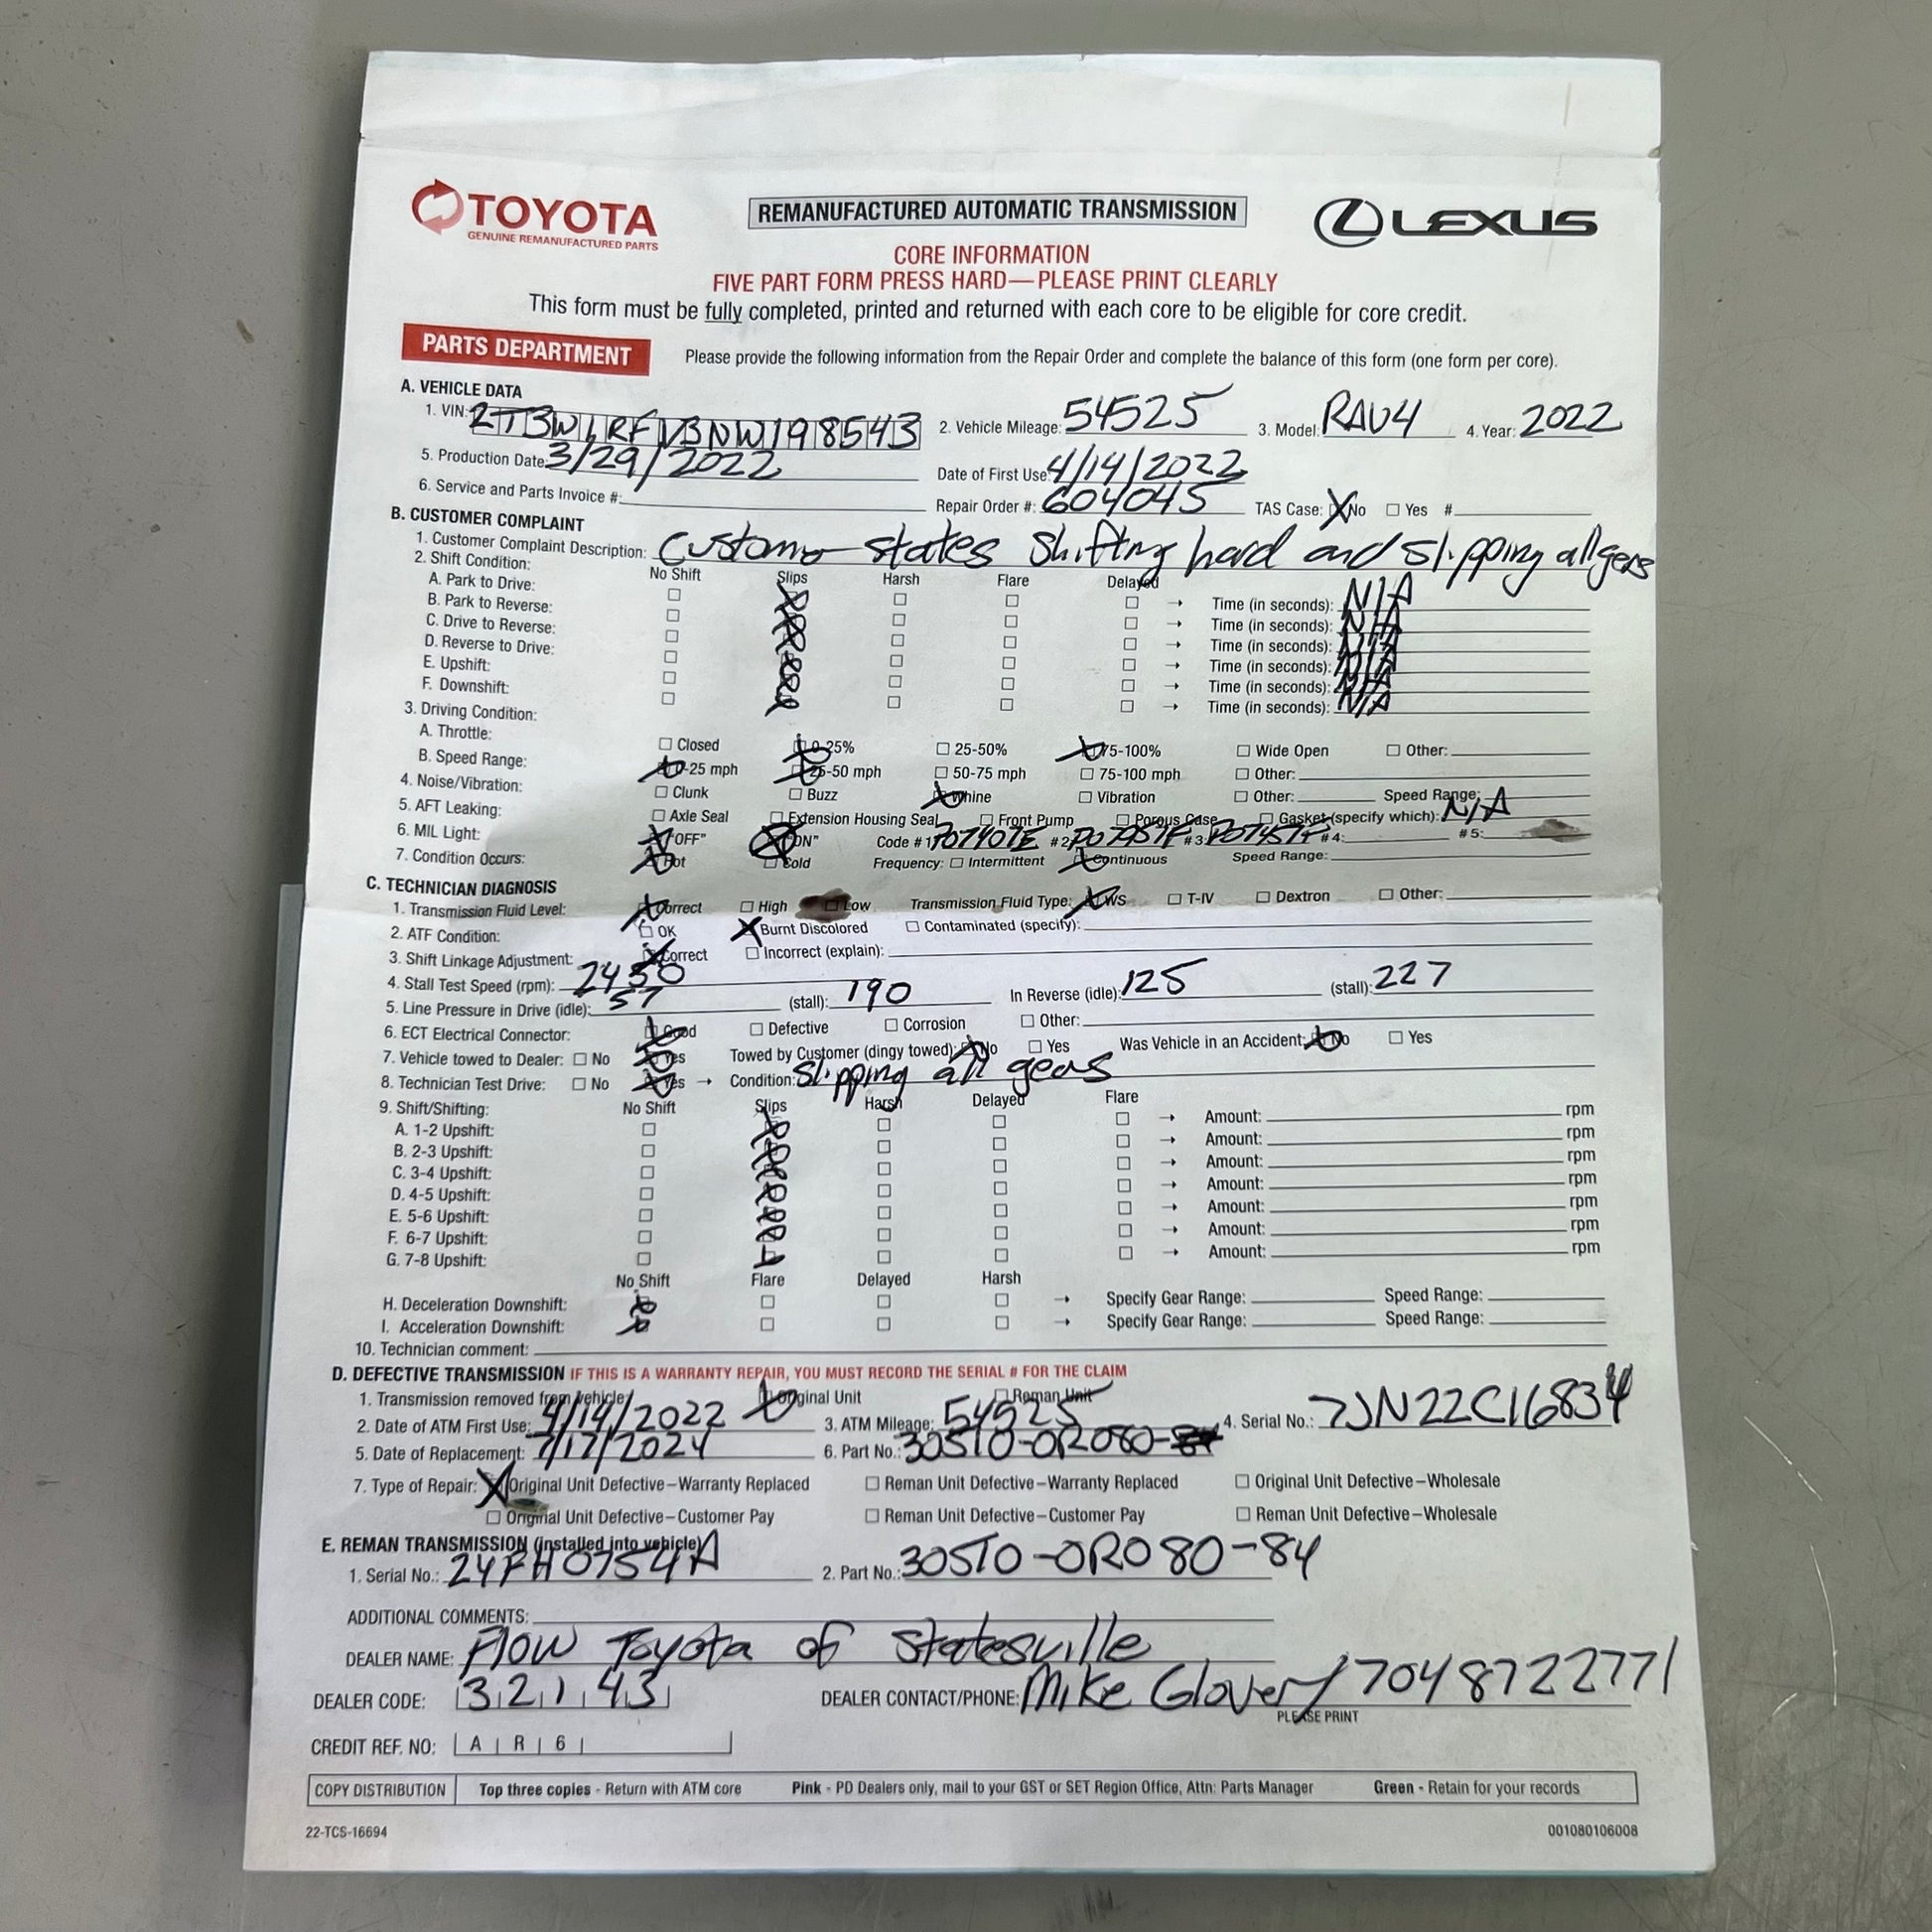 TOYOTA
GENUINE REMANUFACTURED PARTS
REMANUFACTURED AUTOMATIC TRANSMISSION
LEXUS
CORE INFORMATION
FIVE PART FORM PRESS HARD—PLEASE PRINT CLEARLY
This form must be fully completed, printed and returned with each core to be eligible for core credit.
PARTS DEPARTMENT Please provide the following information from the Repair Order and complete the balance of this form (one form per core).
A. VEHICLE DATA
1. VIN: 2T3W1RFV3NW198543 2. Vehicle Mileage: 54525 3. Model: RAV4 4. Year: 2022
5. Production Date: 3/29/2022 Date of First Use: 4/14/2022
6. Service and Parts Invoice #: Repair Order #: 604045 TAS Case: X No ☐ Yes #
B. CUSTOMER COMPLAINT
1. Customer Complaint Description: Customo states Shifting hard and slipping all gers
2. Shift Condition: No Shift Slips Harsh Flare Delayed
A. Park to Drive: ☐ X ☐ ☐ ☐ → Time (in seconds): N/A
B. Park to Reverse: ☐ X ☐ ☐ ☐ → Time (in seconds): N/A
C. Drive to Reverse: ☐ X ☐ ☐ ☐ → Time (in seconds): N/A
D. Reverse to Drive: ☐ X ☐ ☐ ☐ → Time (in seconds): N/A
E. Upshift: ☐ X ☐ ☐ ☐ → Time (in seconds): N/A
F. Downshift: ☐ X ☐ ☐ ☐ → Time (in seconds): N/A
3. Driving Condition:
A. Throttle: ☐ Closed X 0-25% ☐ 25-50% X 75-100% ☐ Wide Open ☐ Other:
B. Speed Range: X 0-25 mph X 25-50 mph ☐ 50-75 mph ☐ 75-100 mph ☐ Other:
4. Noise/Vibration: ☐ Clunk ☐ Buzz X Whine ☐ Vibration ☐ Other: Speed Range:
5. AFT Leaking: ☐ Axle Seal ☐ Extension Housing Seal ☐ Front Pump ☐ Porous Case ☐ Gasket (specify which): N/A
6. MIL Light: X "OFF" X "ON" Code # 1 # 2 # 3 # 4: # 5:
7. Condition Occurs: X Hot ☐ Cold Frequency: ☐ Intermittent X Continuous Speed Range:
C. TECHNICIAN DIAGNOSIS
1. Transmission Fluid Level: X Correct ☐ High ☐ Low Transmission Fluid Type: X WS ☐ T-IV ☐ Dextron ☐ Other:
2. ATF Condition: ☐ OK X Burnt Discolored ☐ Contaminated (specify):
3. Shift Linkage Adjustment: X Correct ☐ Incorrect (explain):
4. Stall Test Speed (rpm): 2450
5. Line Pressure in Drive (idle): 57 (stall): 190 In Reverse (idle): 125 (stall): 227
6. ECT Electrical Connector: X Good ☐ Defective ☐ Corrosion ☐ Other:
7. Vehicle towed to Dealer: ☐ No X Yes Towed by Customer (dingy towed): X No ☐ Yes Was Vehicle in an Accident: X No ☐ Yes
8. Technician Test Drive: ☐ No X Yes → Condition: Slipping all gears
9. Shift/Shifting: No Shift Slips Harsh Delayed Flare
A. 1-2 Upshift: ☐ X ☐ ☐ ☐ → Amount: rpm
B. 2-3 Upshift: ☐ X ☐ ☐ ☐ → Amount: rpm
C. 3-4 Upshift: ☐ X ☐ ☐ ☐ → Amount: rpm
D. 4-5 Upshift: ☐ X ☐ ☐ ☐ → Amount: rpm
E. 5-6 Upshift: ☐ X ☐ ☐ ☐ → Amount: rpm
F. 6-7 Upshift: ☐ X ☐ ☐ ☐ → Amount: rpm
G. 7-8 Upshift: ☐ X ☐ ☐ ☐ → Amount: rpm
No Shift Flare Delayed Harsh
H. Deceleration Downshift: X ☐ ☐ ☐ → Specify Gear Range: Speed Range:
I. Acceleration Downshift: X ☐ ☐ ☐ → Specify Gear Range: Speed Range:
10. Technician comment:
D. DEFECTIVE TRANSMISSION IF THIS IS A WARRANTY REPAIR, YOU MUST RECORD THE SERIAL # FOR THE CLAIM
1. Transmission removed from vehicle: X Original Unit ☐ Reman Unit
2. Date of ATM First Use: 4/14/2022 3. ATM Mileage: 54525 4. Serial No.: 7JN22C16834
5. Date of Replacement: 7/17/2024 6. Part No.: 30510-0R080-
7. Type of Repair: X Original Unit Defective–Warranty Replaced ☐ Reman Unit Defective–Warranty Replaced ☐ Original Unit Defective–Wholesale
☐ Original Unit Defective–Customer Pay ☐ Reman Unit Defective–Customer Pay ☐ Reman Unit Defective–Wholesale
E. REMAN TRANSMISSION (installed into vehicle)
1. Serial No.: 24FH0754A 2. Part No.: 30510-0R080-84
ADDITIONAL COMMENTS:
DEALER NAME: Flow Toyota of Statesville
DEALER CODE: 3 2 1 4 3 DEALER CONTACT/PHONE: Mike Glover / 7048722771
PLEASE PRINT
CREDIT REF. NO: A R 6
COPY DISTRIBUTION Top three copies - Return with ATM core Pink - PD Dealers only, mail to your GST or SET Region Office, Attn: Parts Manager Green - Retain for your records
22-TCS-16694 001080106008